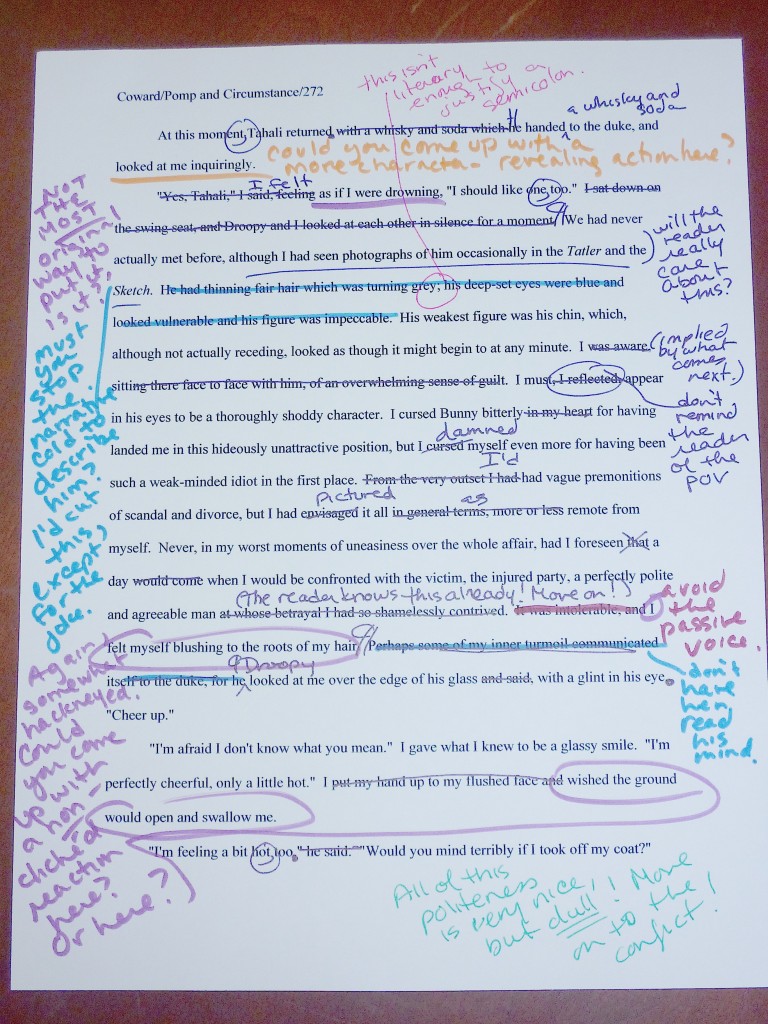 Coward/Pomp and Circumstance/272
this isn't
literary
enough to
justify a
semicolon.
a whisky and
soda
At this moment, Tahali returned with a whisky and soda which he handed to the duke, and
H
looked at me inquiringly.
could you come up with a
more character-revealing action here?
I felt
"Yes, Tahali," I said, feeling as if I were drowning, "I should like one, too." I sat down on
the swing seat, and Droopy and I looked at each other in silence for a moment. We had never
actually met before, although I had seen photographs of him occasionally in the Tatler and the
Sketch. He had thinning fair hair which was turning grey; his deep-set eyes were blue and
looked vulnerable and his figure was impeccable. His weakest figure was his chin, which,
although not actually receding, looked as though it might begin to at any minute. I was aware,
sitting there face to face with him, of an overwhelming sense of guilt. I must, I reflected, appear
in his eyes to be a thoroughly shoddy character. I cursed Bunny bitterly in my heart for having
damned
landed me in this hideously unattractive position, but I cursed myself even more for having been
I'd
such a weak-minded idiot in the first place. From the very outset I had had vague premonitions
pictured
as
of scandal and divorce, but I had envisaged it all in general terms, more or less remote from
myself. Never, in my worst moments of uneasiness over the whole affair, had I foreseen that a
day would come when I would be confronted with the victim, the injured party, a perfectly polite
(The reader knows this already! Move on!)
and agreeable man at whose betrayal I had so shamelessly contrived. It was intolerable, and I
felt myself blushing to the roots of my hair. Perhaps some of my inner turmoil communicated
Droopy
itself to the duke, for he looked at me over the edge of his glass and said, with a glint in his eye,
"Cheer up."
"I'm afraid I don't know what you mean." I gave what I knew to be a glassy smile. "I'm
perfectly cheerful, only a little hot." I put my hand up to my flushed face and wished the ground
would open and swallow me.
"I'm feeling a bit hot, too," he said. "Would you mind terribly if I took off my coat?"
NOT
THE
MOST
original
way to
put it,
is it?
must
you
stop
the
narrative
cold to
describe
him?
I'd cut
this,
except
for the
joke.
Again,
somewhat
hackneyed.
Could
you come
up with
a non-
clichéd
reaction
here?
Or here?
will the
reader
really
care
about
this?
(implied
by what
comes
next.)
don't
remind
the
reader
of the
POV
avoid
the
passive
voice.
don't
have
her
read
his
mind.
All of this
politeness
is very nice,
but dull! Move
on to the
conflict!